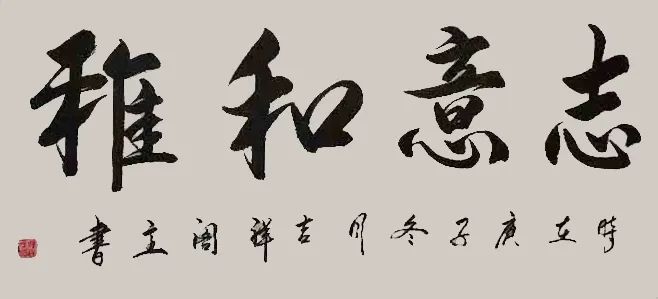 志意和雅
時在庚子冬月吉祥阁主書